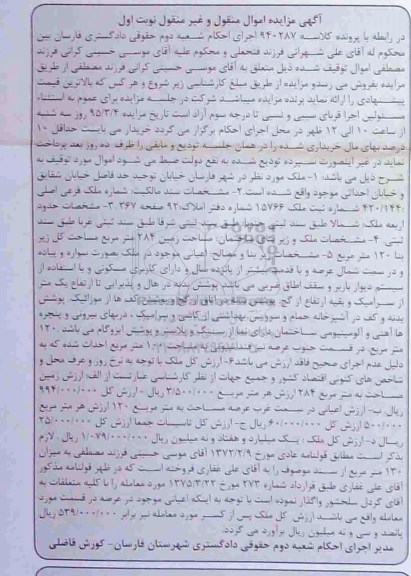 آگهی مزایده اموال منقول و غیر منقول نوبت اول
در رابطه با پرونده کلاسه ۹۴۰۲۸۷ اجرای احکام شعبه دوم حقوقی دادگستری فارسان بین
محکوم له آقای علی شهرانی فرزند فتحعلی و محکوم علیه آقای موسی حسینی کرانی فرزند
مصطفی اموال توقیف شده ذیل متعلق به آقای موسی حسینی کرانی فرزند مصطفی از طریق
مزایده بفروش می رسد و مزایده از طریق مبلغ کارشناسی زیر شروع و هر کس که بالاترین قیمت
پیشنهادی را ارائه نماید برنده مزایده میباشد شرکت در جلسه مزایده برای عموم به استثناء
مسئولین اجرا قربای سببی و نسبی تا درجه سوم آزاد است تاریخ مزایده ۹۵/۳/۴ روز سه شنبه
از ساعت ۱۰ الی ۱۲ ظهر در محل اجرای احکام برگزار می گردد خریدار می بایست حداقل ۱۰
درصد بهای مال خریداری شده را در همان جلسه تودیع و مابقی را ظرف ده روز بعد پرداخت
نماید در غیر اینصورت سپرده تودیع شده به نفع دولت ضبط می شود اموال مورد توقیف به
شرح ذیل می باشد: ۱- ملک مورد نظر در شهر فارسان خیابان توحید حد فاصل خیابان شقایق
و خیابان احداثی موجود واقع شده است ۲- مشخصات سند مالکیت: شماره ملک فرعی اصلی
۴۲۰/۱۴۴۰ شماره ثبت ملک ۱۵۷۶۶ شماره دفتر املاک:۹۲ صفحه ۳۶۷ ۳- مشخصات حدود
اربعه ملک: شمالا طبق سند ثبتی جنوبا طبق سند ثبتی شرقا طبق سند ثبتی غربا طبق سند
ثبتی ۴- مشخصات ملک و زیر بنای ساختمان: مساحت زمین ۲۸۴ متر مربع مساحت کل زیر
بنا ۱۲۰ متر مربع ۵- مشخصات زیر بنا و مصالح: اعیانی موجود در ملک بصورت سواره و پیاده
و در سمت شمال عرصه و با قدمت بیشتر از پانزده سال و دارای کاربری مسکونی و با استفاده از
سیستم دیوار باربر و سقف اطاق ضربی می باشد پوشش بدنه در هال و پذیرایی تا ارتفاع یک متر
از سرامیک و بقیه ارتفاع از گچ پوشش بدنه در اتاق ها از گچ و پوشش کف ها از موزائیک پوشش
بدنه و کف در آشپزخانه حمام و سرویس بهداشتی از کاشی و سرامیک ، دربهای بیرونی و پنجره
ها آهنی و آلومینیومی ساختمان دارای نما از سنگ و پلاستر و پوشش ایزوگام می باشد ۱۲۰
متر مربع در قسمت جنوب عرصه نیز به مساحت ۱۰۰ متر مربع احداث شده که به
دلیل عدم اجرای صحیح فاقد ارزش می باشد ۶- ارزش کل ملک با توجه به نرخ روز و عرف محل و
شاخص های کنونی اقتصاد کشور و جمیع جهات از نظر کارشناسی عبارتست از الف: ارزش زمین
مساحت به متر مربع ۲۸۴ ارزش هر متر مربع ۳/۵۰۰/۰۰۰ ریال - ارزش کل ۹۹۴/۰۰۰/۰۰۰
ریال ب- ارزش اعیانی در سمت غرب عرصه مساحت به متر مربع ۱۲۰ ارزش هر متر مربع
۵۰۰/۰۰۰ ارزش کل ۶۰/۰۰۰/۰۰۰ ریال ج- ارزش کل تاسیسات جمعا ارزش کل ۲۵/۰۰۰/۰۰۰
ریال د- ارزش کل ملک : یک میلیارد و هفتاد و نه میلیون ریال ۱/۰۷۹/۰۰۰/۰۰۰ ریال. لازم
بذکر است مطابق قولنامه عادی مورخ ۱۳۷۲/۲/۹ آقای موسی حسینی فرزند مصطفی به میزان
۱۳۰ متر مربع از سند موصوف را به آقای علی غفاری فروخته است که در ظهر قولنامه مذکور
آقای علی غفاری طبق قرارداد شماره ۲۷۳ مورخ ۱۳۷۵/۳/۲۲ مورد معامله را با کلیه متعلقات به
آقای گردل سلحشور واگذار نموده است با توجه به اینکه اعیانی موجود در عرصه در قسمت مورد
معامله واقع می باشند ارزش کل ملک پس از کسر مورد معامله نیز برابر ۵۳۹/۰۰۰/۰۰۰ ریال
پانصد و سی و نه میلیون ریال برآورد می گردد.
مدیر اجرای احکام شعبه دوم حقوقی دادگستری شهرستان فارسان- کورش فاضلی